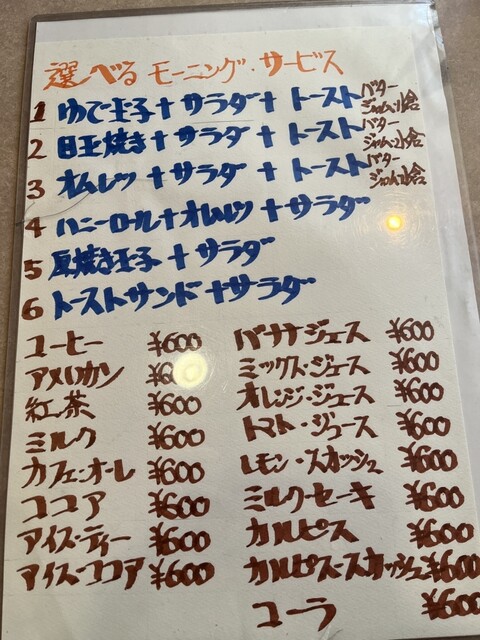 選べるモーニング・サービス
1 ゆで玉子+サラダ+トースト バター ジャム・小倉
2 目玉焼き+サラダ+トースト バター ジャム・小倉
3 オムレツ+サラダ+トースト バター ジャム・小倉
4 ハニーロール+オムレツ+サラダ
5 厚焼き玉子+サラダ
6 トーストサンド+サラダ
コーヒー ¥600
アメリカン
紅茶 ¥600
ミルク ¥600
カフェ・オーレ ¥600
ココア ¥600
アイス・ティー ¥600
アイス・ココア ¥600
バナナジュース ¥600
ミックス・ジュース ¥600
オレンジ・ジュース ¥600
トマト・ジュース ¥600
レモン・スカッシュ ¥600
ミルクセーキ ¥600
カルピス ¥600
カルピス・スカッシュ ¥600
コーラ ¥600